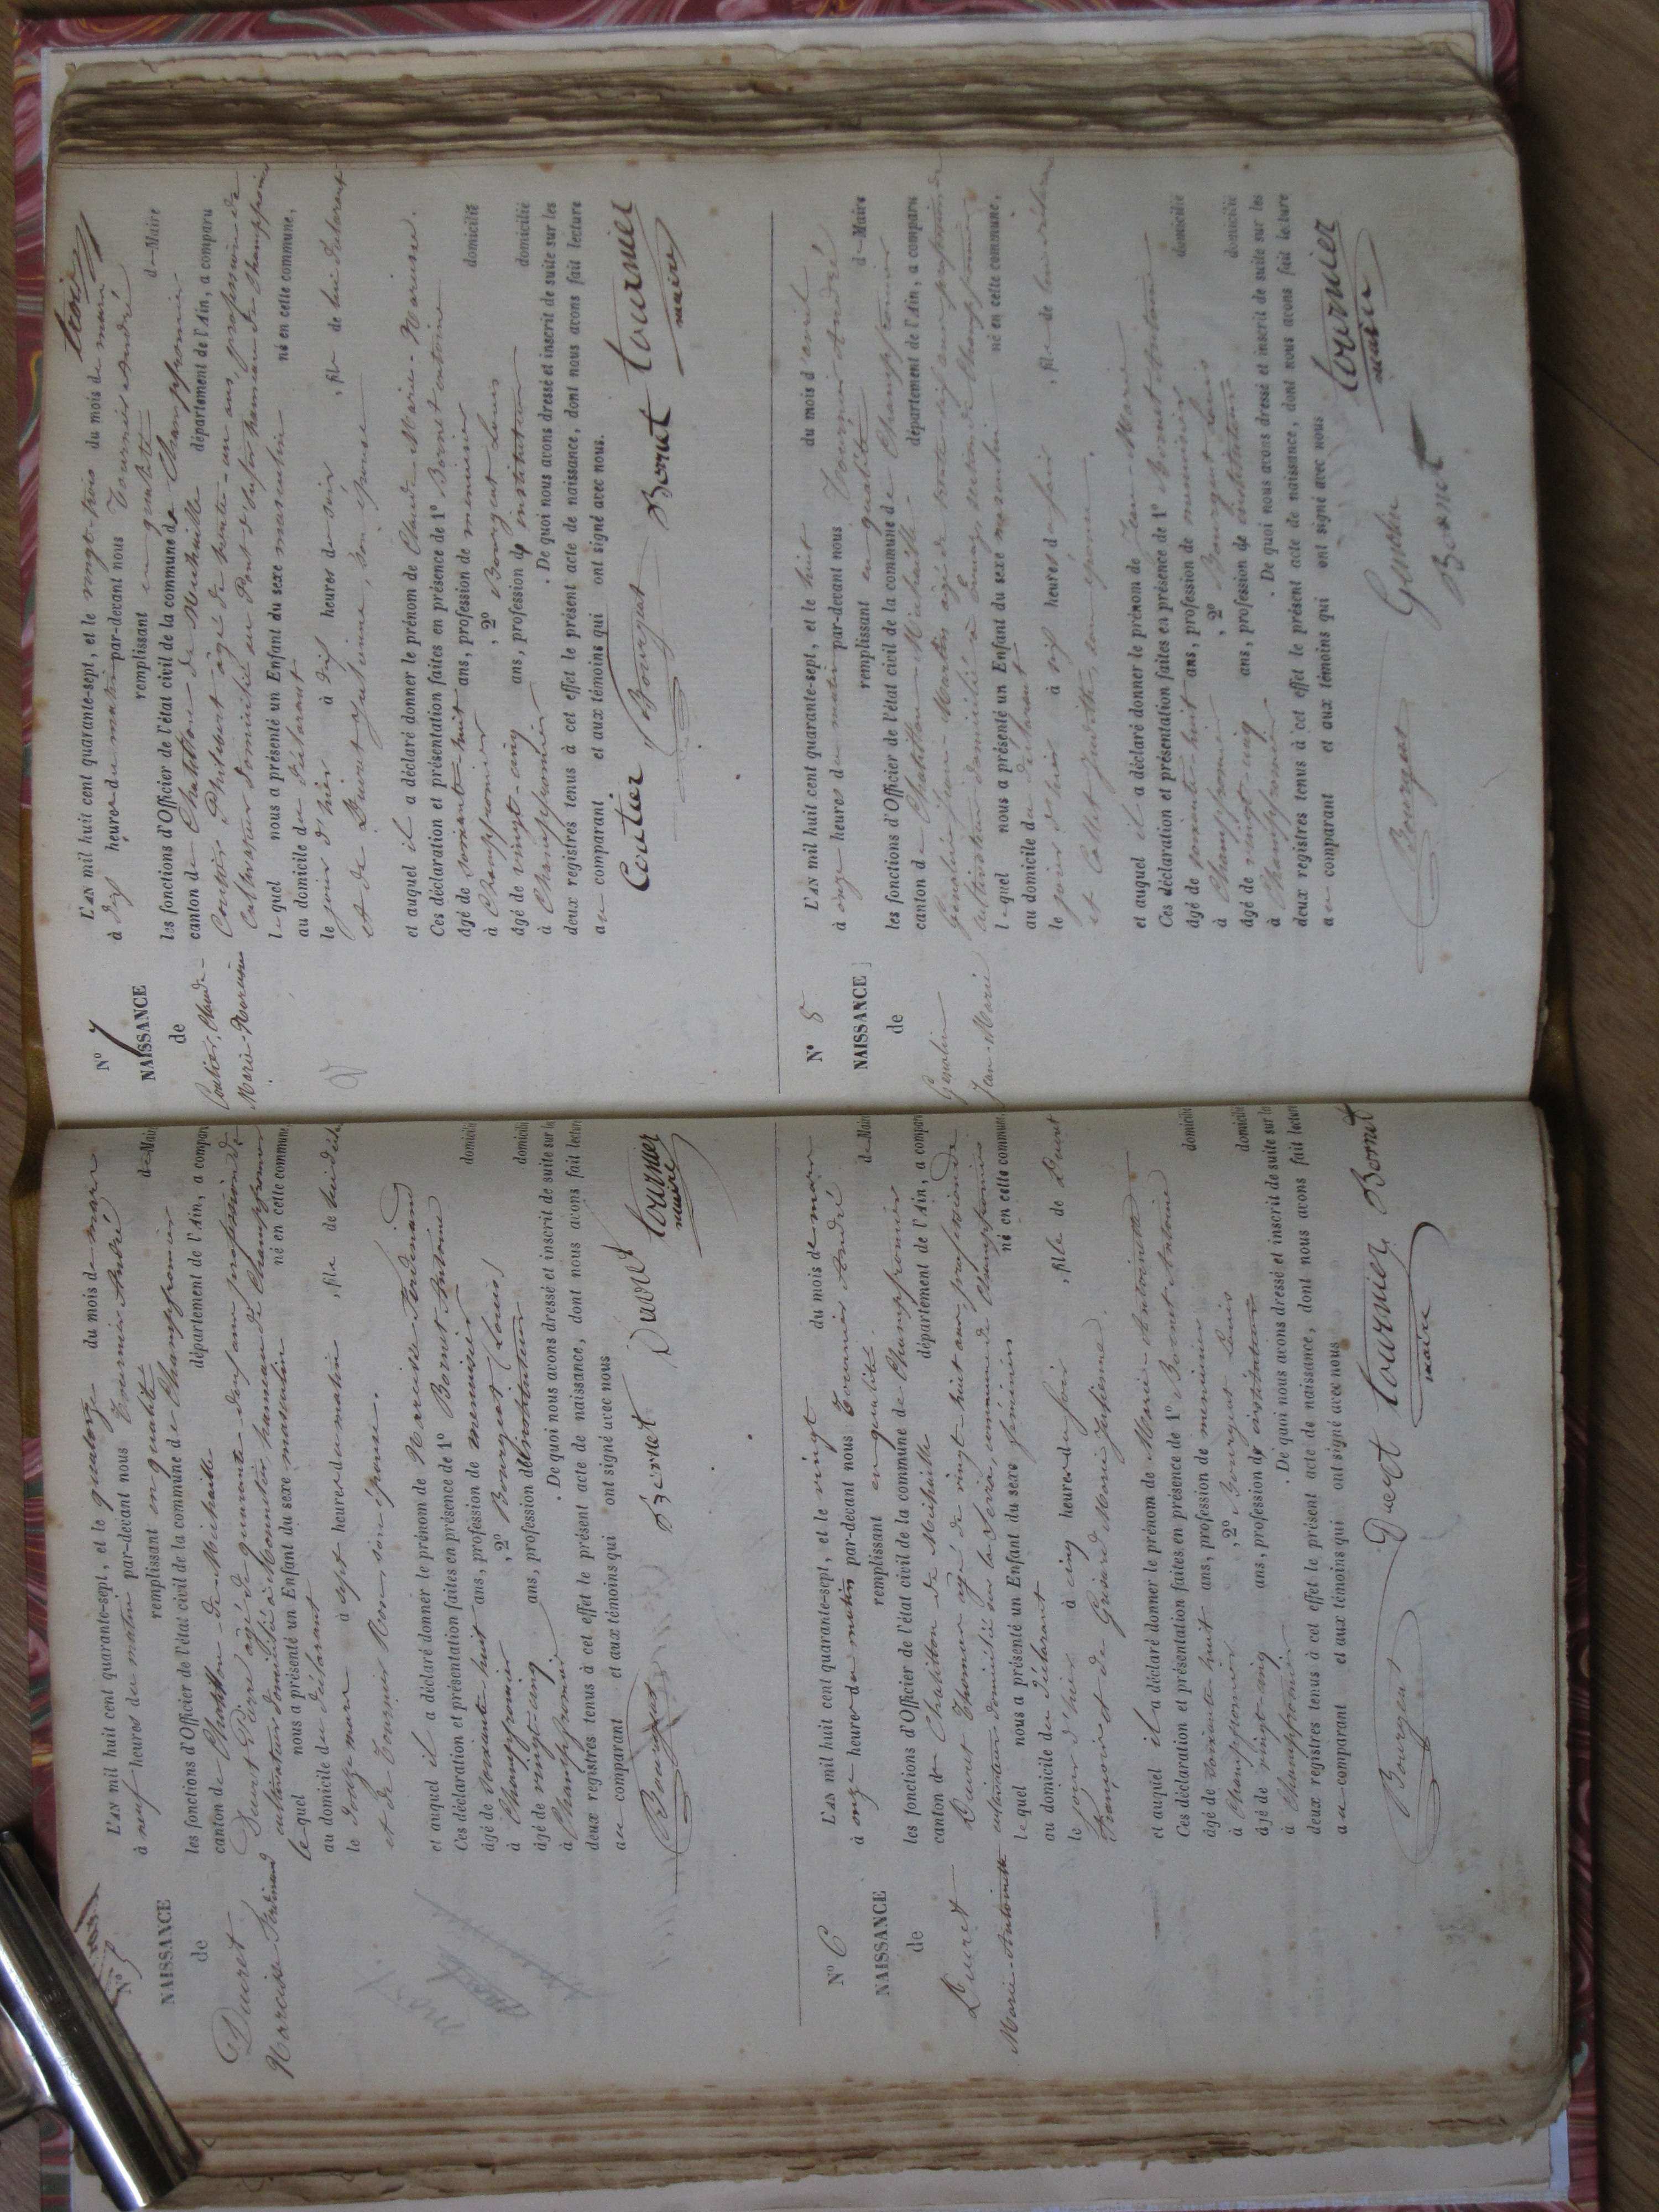 N° 5
NAISSANCE
de
Ducret
Narcisse Ferdinand
L'AN mil huit cent quarante-sept, et le quatorze du mois de mars
à neuf heures du matin par-devant nous Tournier André
remplissant en qualité de Maire
les fonctions d'Officier de l'état civil de la commune de Champfromier
canton de Chatillon-de-Michaille département de l'Ain, a comparu
Ducret Pierre âgé de quarante-deux ans profession de
cultivateur domicilié à Monnetier, hameau de Champfromier
lequel nous a présenté un Enfant du sexe masculin né en cette commune,
au domicile du déclarant
le douze mars à sept heures du matin, fils de lui décla
et de Tournier Rose son épouse.
et auquel il a déclaré donner le prénom de Narcisse Ferdinand
Ces déclaration et présentation faites en présence de 1° Bornet Antoine
âgé de soixante huit ans, profession de menuisier domicilié
à Champfromier, 2° Bourgeat (Louis)
âgé de vingt-cinq ans, profession d'instituteur domicilié
à Champfromier. De quoi nous avons dressé et inscrit de suite sur les
deux registres tenus à cet effet le présent acte de naissance, dont nous avons fait lecture
au comparant et aux témoins qui ont signé avec nous
Bourgeat Bornet Ducret Tournier
maire
N° 6
NAISSANCE
de
Ducret
Marie-Antoinette
L'AN mil huit cent quarante-sept, et le vingt du mois de mars
à onze heures du matin par-devant nous Tournier André
remplissant en qualité de Maire
les fonctions d'Officier de l'état civil de la commune de Champfromier
canton de Chatillon de Michaille département de l'Ain, a comparu
Ducret Thomas âgé de vingt-huit ans profession de
cultivateur domicilié sur la Serra, commune de Champfromier
lequel nous a présenté un Enfant du sexe féminin né en cette commune,
au domicile du déclarant
le jour d'hier à cinq heures du soir, fille de Ducret
Thomas et de Guisard Marie Justienne.
et auquel il a déclaré donner le prénom de Marie Antoinette
Ces déclaration et présentation faites en présence de 1° Bornet Antoine
âgé de soixante huit ans, profession de menuisier domicilié
à Champfromier, 2° Bourgeat Louis
âgé de vingt-cinq ans, profession de instituteur domicilié
à Champfromier. De quoi nous avons dressé et inscrit de suite sur les
deux registres tenus à cet effet le présent acte de naissance, dont nous avons fait lecture
au comparant et aux témoins qui ont signé avec nous
Bourgeat Ducret Tournier Bornet
maire
trois
N° 7
NAISSANCE
de
Coutier, Claude-
Marie-Narcisse
L'AN mil huit cent quarante-sept, et le vingt-trois du mois de mars
à dix heures du matin par-devant nous Tournier André
remplissant en qualité de Maire
les fonctions d'Officier de l'état civil de la commune de Champfromier
canton de Chatillon de Michaille département de l'Ain, a comparu
Coutier Philibert âgé de trente-un ans, profession de
Cultivateur domicilié au Pont d'enfer, hameau de Champfromier
lequel nous a présenté un Enfant du sexe masculin né en cette commune,
au domicile du déclarant
le jour d'hier à dix heures du soir, fils de lui déclarant
et de Ducret Justienne, son épouse
et auquel il a déclaré donner le prénom de Claude-Marie-Narcisse.
Ces déclaration et présentation faites en présence de 1° Bornet antoine
âgé de soixante-huit ans, profession de menuisier domicilié
à Champfromier, 2° Bourgeat Louis
âgé de vingt-cinq ans, profession de instituteur domicilié
à Champfromier. De quoi nous avons dressé et inscrit de suite sur les
deux registres tenus à cet effet le présent acte de naissance, dont nous avons fait lecture
au comparant et aux témoins qui ont signé avec nous.
Coutier Bourgeat Bornet Tournier
maire
N° 8
NAISSANCE
de
Genolin
Jean-Marie
L'AN mil huit cent quarante-sept, et le huit du mois d'avril
à onze heures du matin par-devant nous Tournier André
remplissant en qualité de Maire
les fonctions d'Officier de l'état civil de la commune de Champfromier
canton de Chatillon-Michaille. département de l'Ain, a comparu
Genolin Jean-Martin âgé de trente-six ans profession de
cultivateur domicilié à section de Champfromier
lequel nous a présenté un Enfant du sexe masculin né en cette commune,
au domicile du déclarant
le jour d'hier à six heures du soir, fils de lui déclara
et Collet Judith, son épouse.
et auquel il a déclaré donner le prénom de Jean-Marie
Ces déclaration et présentation faites en présence de 1° Bornet Antoine
âgé de soixante-huit ans, profession de menuisier domicilié
à Champfromier, 2° Bourgeat Louis
âgé de vingt-cinq ans, profession de instituteur domicilié
à Champfromier. De quoi nous avons dressé et inscrit de suite sur les
deux registres tenus à cet effet le présent acte de naissance, dont nous avons fait lecture
au comparant et aux témoins qui ont signé avec nous
Bourgeat Genolin Tournier
Bornet maire